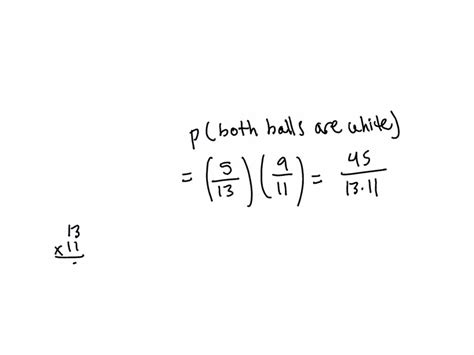 p(both balls are white)
= (5/13)(9/11) = 45/13·11
13
x 11